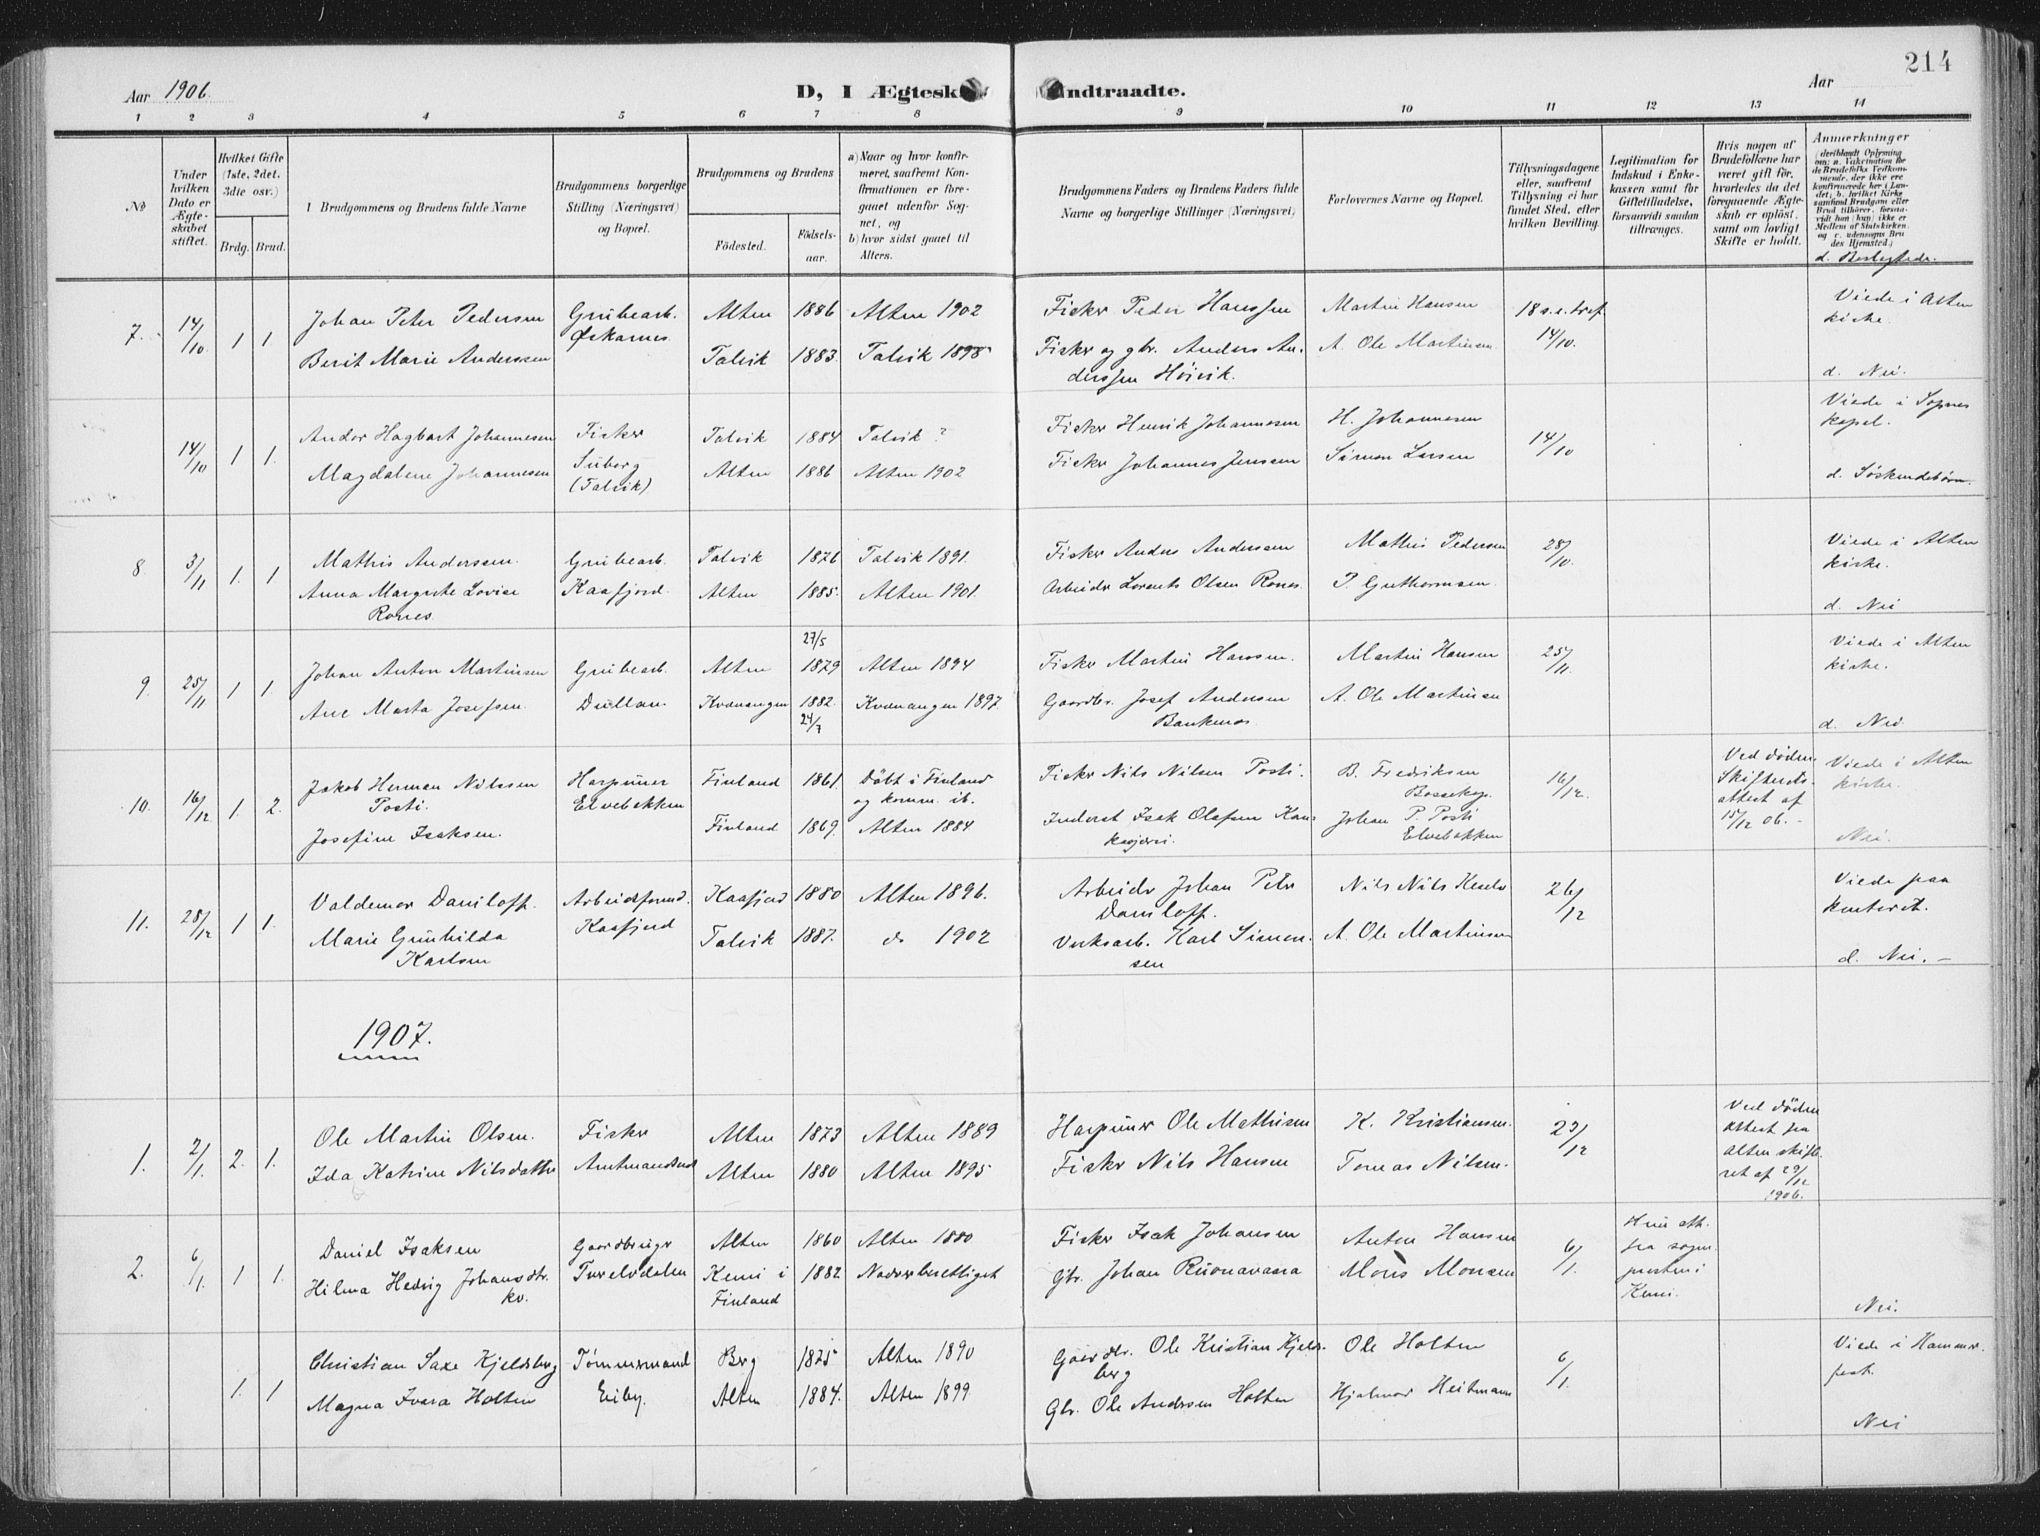 214
Aar 1906.
D, I Ægtesk
ndtraadte.
Aar
1 2 3 4 5 6 7 8 9 10 11 12 13 14
No
Under hvilken Dato er Ægteskabet stiftet.
Hvilket Gifte (1ste, 2det, 3die osv.)
Brdg. Brud.
Brudgommens og Brudens fulde Navne
Brudgommens borgerlige Stilling (Næringsvei) og Bopæl.
Brudgommens og Brudens
Fødested. Fødselsaar.
a) Naar og hvor konfirmeret, saafremt Konfirmationen er foregaaet udenfor Sognet, og
b) hvor sidst gaaet til Alters.
Brudgommens Faders og Brudens Faders fulde Navne og borgerlige Stillinger (Næringsvei)
Forlovernes Navne og Bopæl.
Tillysningsdagene eller, saafremt Tillysning ei har fundet Sted, efter hvilken Bevilling.
Legitimation for Indskud i Enkekassen samt for Giftetilladelse, forsaavidt saadan tiltrænges.
Hvis nogen af Brudefolkene har været gift før, hvorledes da det foregaaende Ægteskab er opløst, samt om lovligt Skifte er holdt.
Anmerkninger
d. Beslegtede.
7. 14/10 1 1 Johan Peter Pedersen Grubearb. Alten 1886 Alten 1902 Fisker Peder Hanssen Martin Hansen Viede i Alten
Øskarnes 14/10. kirke.
Berit Marie Anderssen Talvik 1883. Talvik 1898 Fisker og gbr. Anders An- A. Ole Martinsen
derssen Hövik. d. Nei.
14/10 1 1. Andor Hagbart Johannesen Fisker Talvik 1884 Talvik ? Fisker Henrik Johannesen H. Johannesen 14/10 Viede i Sopnes
kapel.
Magdalene Johannesen (Talvik) Alten 1886 Alten 1902 Fisker Johannes Jenssen Simon Larsen
d. Söskendebörn.
8. 3/11 1. 1 Mathis Anderssen. Grubearb. Talvik 1876 Talvik 1891. Fisker Anders Anderssen Mathis Pedersen 28/10. Viede i Alten
kirke.
Anna Margrete Lovise Kaafjord. Alten 1885. Alten 1901. Arbeider Lorents Olsen Rones. P. Guthormsen.
Rones. d. Nei
27/5
9. 25/11 1. 1 Johan Anton Martinsen Grubearb. Alten 1879 Alten 1894 Fisker Martin Hanssen. Martin Hansen 25/11. Viede i Alten
kirke.
Ane Marta Josefsen. Kvænangen 1882. Kvænangen 1897. Gaardbr. Josef Andersen A. Ole Martinsen
24/7 d. Nei
10. 16/12 1. 2. Jakob Herman Nilssen Harpuner Finland 1861. Döbt i Finland Fisker Nils Nilsen Posti. B. Fredriksen 16/12. Ved döden Viede i Alten
Posti. Elvebakken og komm. ib. Bossekop. Skifteretsattest af kirke.
Josefine Isaksen. Finland 1869. Alten 1884 Inderst Isak Olafsen Kan- Johan P. Posti 15/12 06.-
Elvebakken Nei.
11. 28/12 1 1. Valdemar Daniloff. Arbeidsformd. Kaafjord 1880 Alten 1896. Arbeider Johan Peter Nils Nils 26/12 Viede paa
Kaafjord Daniloff. kontoret.
Marie Gunhilda Talvik 1887. do 1902 Verksarb. Karl Simon- A. Ole Martinsen
Karlsen sen d. Nei. -
1907.
1. 2/1. 2. 1. Ole Martin Olsen. Fisker Alten 1873 Alten 1889 Harpuner Ole Mathisen K. Kristiansen. 23/12 Ved döden
attest fra
Ida Katrine Nilsdatter Amtmandsnes Alten 1880 Alten 1895 Fisker Nils Hansen Tomas Nilsen. Alten skifteret af 29/12
1906.
2. 6/1. 1 1. Daniel Isaksen Gaardbruger Alten 1860 Alten 1880 Fisker Isak Johansen Anton Hansen 6/1.
fra sogne-
Hilma Hedvig Johansdtr. Tverelvdalen Kemi i 1882 Nadverberettiget Gbr. Johan Ruonavaara Mons Monsen presten i
kv. Finland Kemi. Nei.
1. 1 Christian Saxe Kjeldsberg Tömmermand Berg 1875 Alten 1890 Gaardbr. Ole Kristian Kjelds- Ole Holten 6/1. Viede i Hammer-
Eiby. berg fest.
Magna Ivara Holten Alten 1884. Alten 1899 Gbr. Ole Andersen Holten Hjalmar Heitmann
Nei